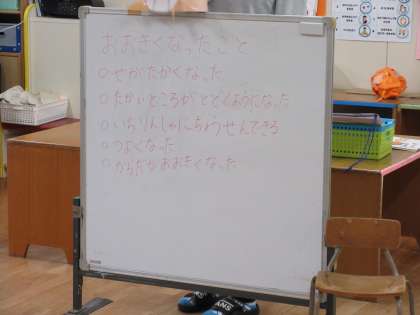 おおきくなったこと
○せがたかくなった
○たかいところがとどくようになった
○いちりんしゃにちょうせんできる
○つよくなった
○からだがおおきくなった
VANS